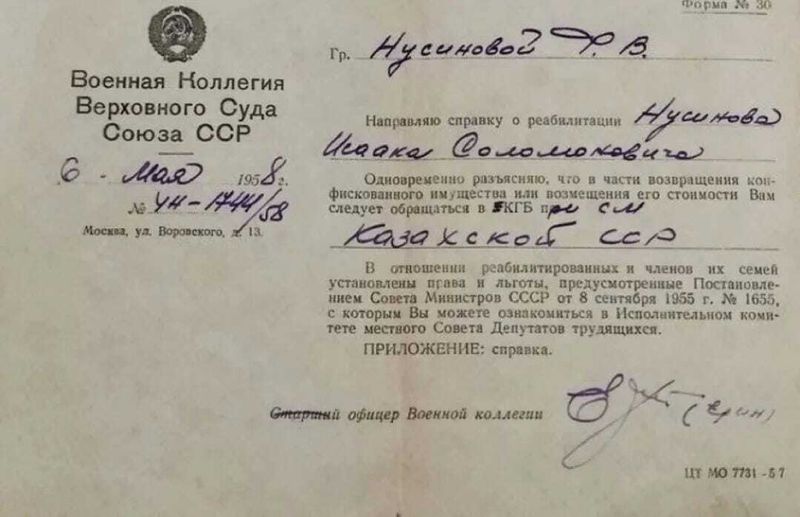 Форма № 30
Военная Коллегия
Верховного Суда
Союза ССР
6 - Мая 1958 г.
№ 4н-1744/58
Москва, ул. Воровского, д. 13.
Гр. Нусиновой Ф. В.
Направляю справку о реабилитации Нусинова
Исаака Соломоновича
Одновременно разъясняю, что в части возвращения кон-
фискованного имущества или возмещения его стоимости Вам
следует обращаться в КГБ при СМ
Казахской ССР
В отношении реабилитированных и членов их семей
установлены права и льготы, предусмотренные Постановле-
нием Совета Министров СССР от 8 сентября 1955 г. № 1655,
с которым Вы можете ознакомиться в Исполнительном коми-
тете местного Совета Депутатов трудящихся.
ПРИЛОЖЕНИЕ: справка.
Старший офицер Военной коллегии (Ерин)
ЦТ МО 7731-57